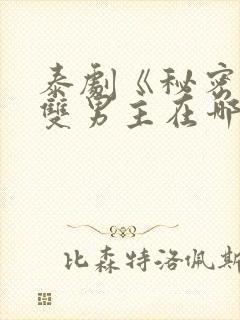 泰劇《秘密
雙男主在哪
比森特洛佩斯